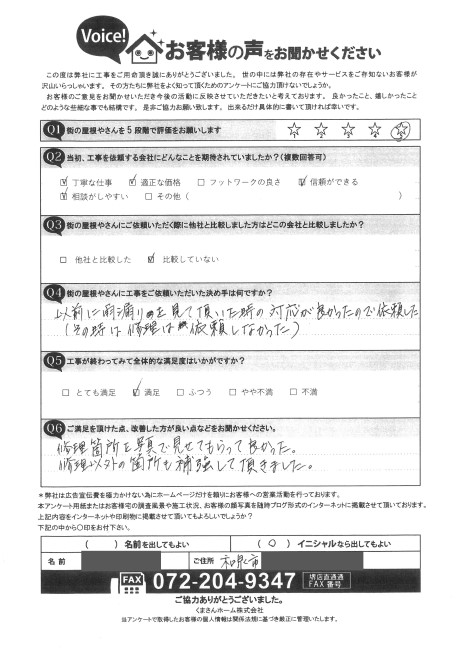 Voice!
お客様の声をお聞かせください
この度は弊社に工事をご用命頂き誠にありがとうございました。世の中には弊社の存在やサービスをご存知ないお客様が
沢山いらっしゃいます。その方たちに弊社をよく知って頂くためのアンケートにご協力頂けないでしょうか。
お客様のご意見をお聞かせいただき今後の活動に反映させていただきたいと考えております。良かったこと、嬉しかったこと
どのような些細な事でも結構です。是非ご協力お願い致します。出来るだけ具体的に書いて頂ければ幸いです。
Q1 街の屋根やさんを5段階で評価をお願いします
Q2 当初、工事を依頼する会社にどんなことを期待されていましたか？(複数回答可)
☑ 丁寧な仕事 ☑ 適正な価格 □ フットワークの良さ ☑ 信頼ができる
☑ 相談がしやすい □ その他( )
Q3 街の屋根やさんにご依頼いただく際に他社と比較しました方はどこの会社と比較しましたか？
□ 他社と比較した ☑ 比較していない
Q4 街の屋根やさんに工事をご依頼いただいた決め手は何ですか？
以前に雨漏りを見て頂いた時の対応が良かったので依頼した
(その時は修理は依頼しなかった)
Q5 工事が終わってみて全体的な満足度はいかがですか？
□ とても満足 ☑ 満足 □ ふつう □ やや不満 □ 不満
Q6 ご満足を頂けた点、改善した方が良い点などをお聞かせください。
修理箇所を写真で見せてもらって良かった。
修理以外の箇所も補強して頂きました。
＊弊社は広告宣伝費を極力かけない為にホームページだけを頼りにお客様への営業活動を行っております。
本アンケート用紙またはお客様宅の調査風景や施工状況、お客様の顔写真を随時ブログ形式のインターネットに掲載させて頂いております。
上記内容をインターネットや印刷物に掲載させて頂いてもよろしいでしょうか？
下記の中から○印をお付下さい。
( ) 名前を出してもよい ( ○ ) イニシャルなら出してもよい
名前 ご住所 和泉市
FAX 072-204-9347 堺店直通 FAX 番号
ご協力ありがとうございました。
くまさんホーム株式会社
※アンケートで取得したお客様の個人情報は関係法規に基づき厳正に管理いたします。